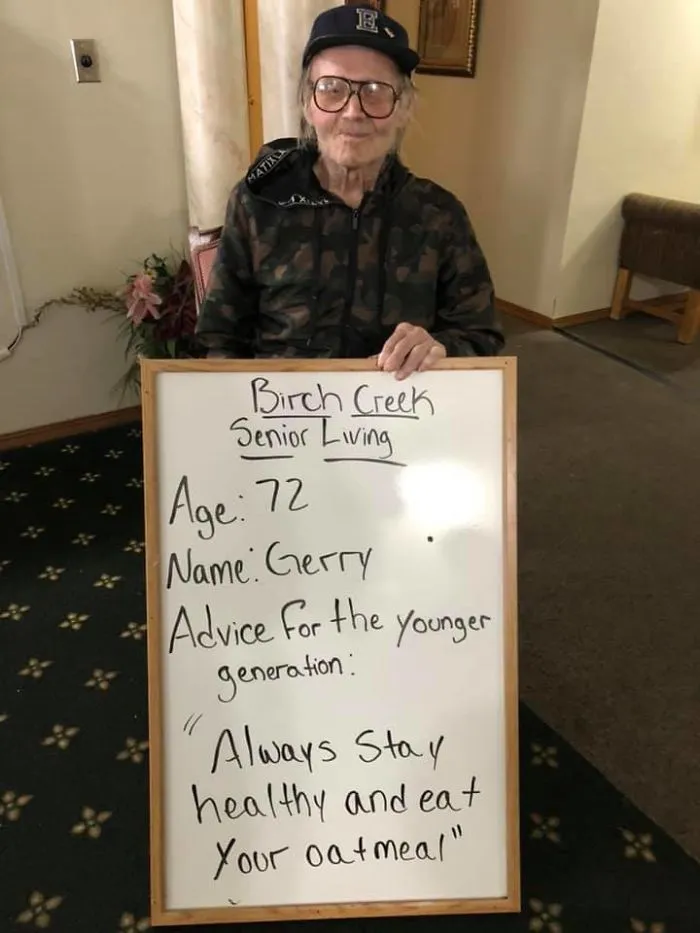 E
MATIX
Birch Creek
Senior Living
Age: 72
Name: Gerry
Advice for the younger
generation:
"Always Stay
healthy and eat
Your oatmeal"